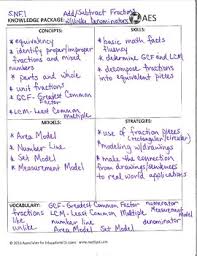 5NF1
Add/Subtract Fractions
KNOWLEDGE PACKAGE:
w/unlike Denominators
AES
CONCEPTS:
* equivalency
* identify proper/improper
fractions and mixed
numbers
* parts and whole
* unit fractions
* GCF - Greatest Common
Factor
* LCM - Least Common
Multiple
SKILLS:
* basic math facts
fluency
* determine GCF and LCM
* decompose fractions
into equivalent pieces
MODELS:
* Area Model
* Number Line
* Set Model
* Measurement Model
STRATEGIES:
* use of fraction pieces
(rectangular/circular)
* modeling w/drawings
* make the connection
from drawings/sentences
to real world applications
VOCABULARY: GCF - Greatest Common Factor numerator
fractions LCM - Least Common Multiple Measurement Model
like number line denominator
unlike Set Model Area Model